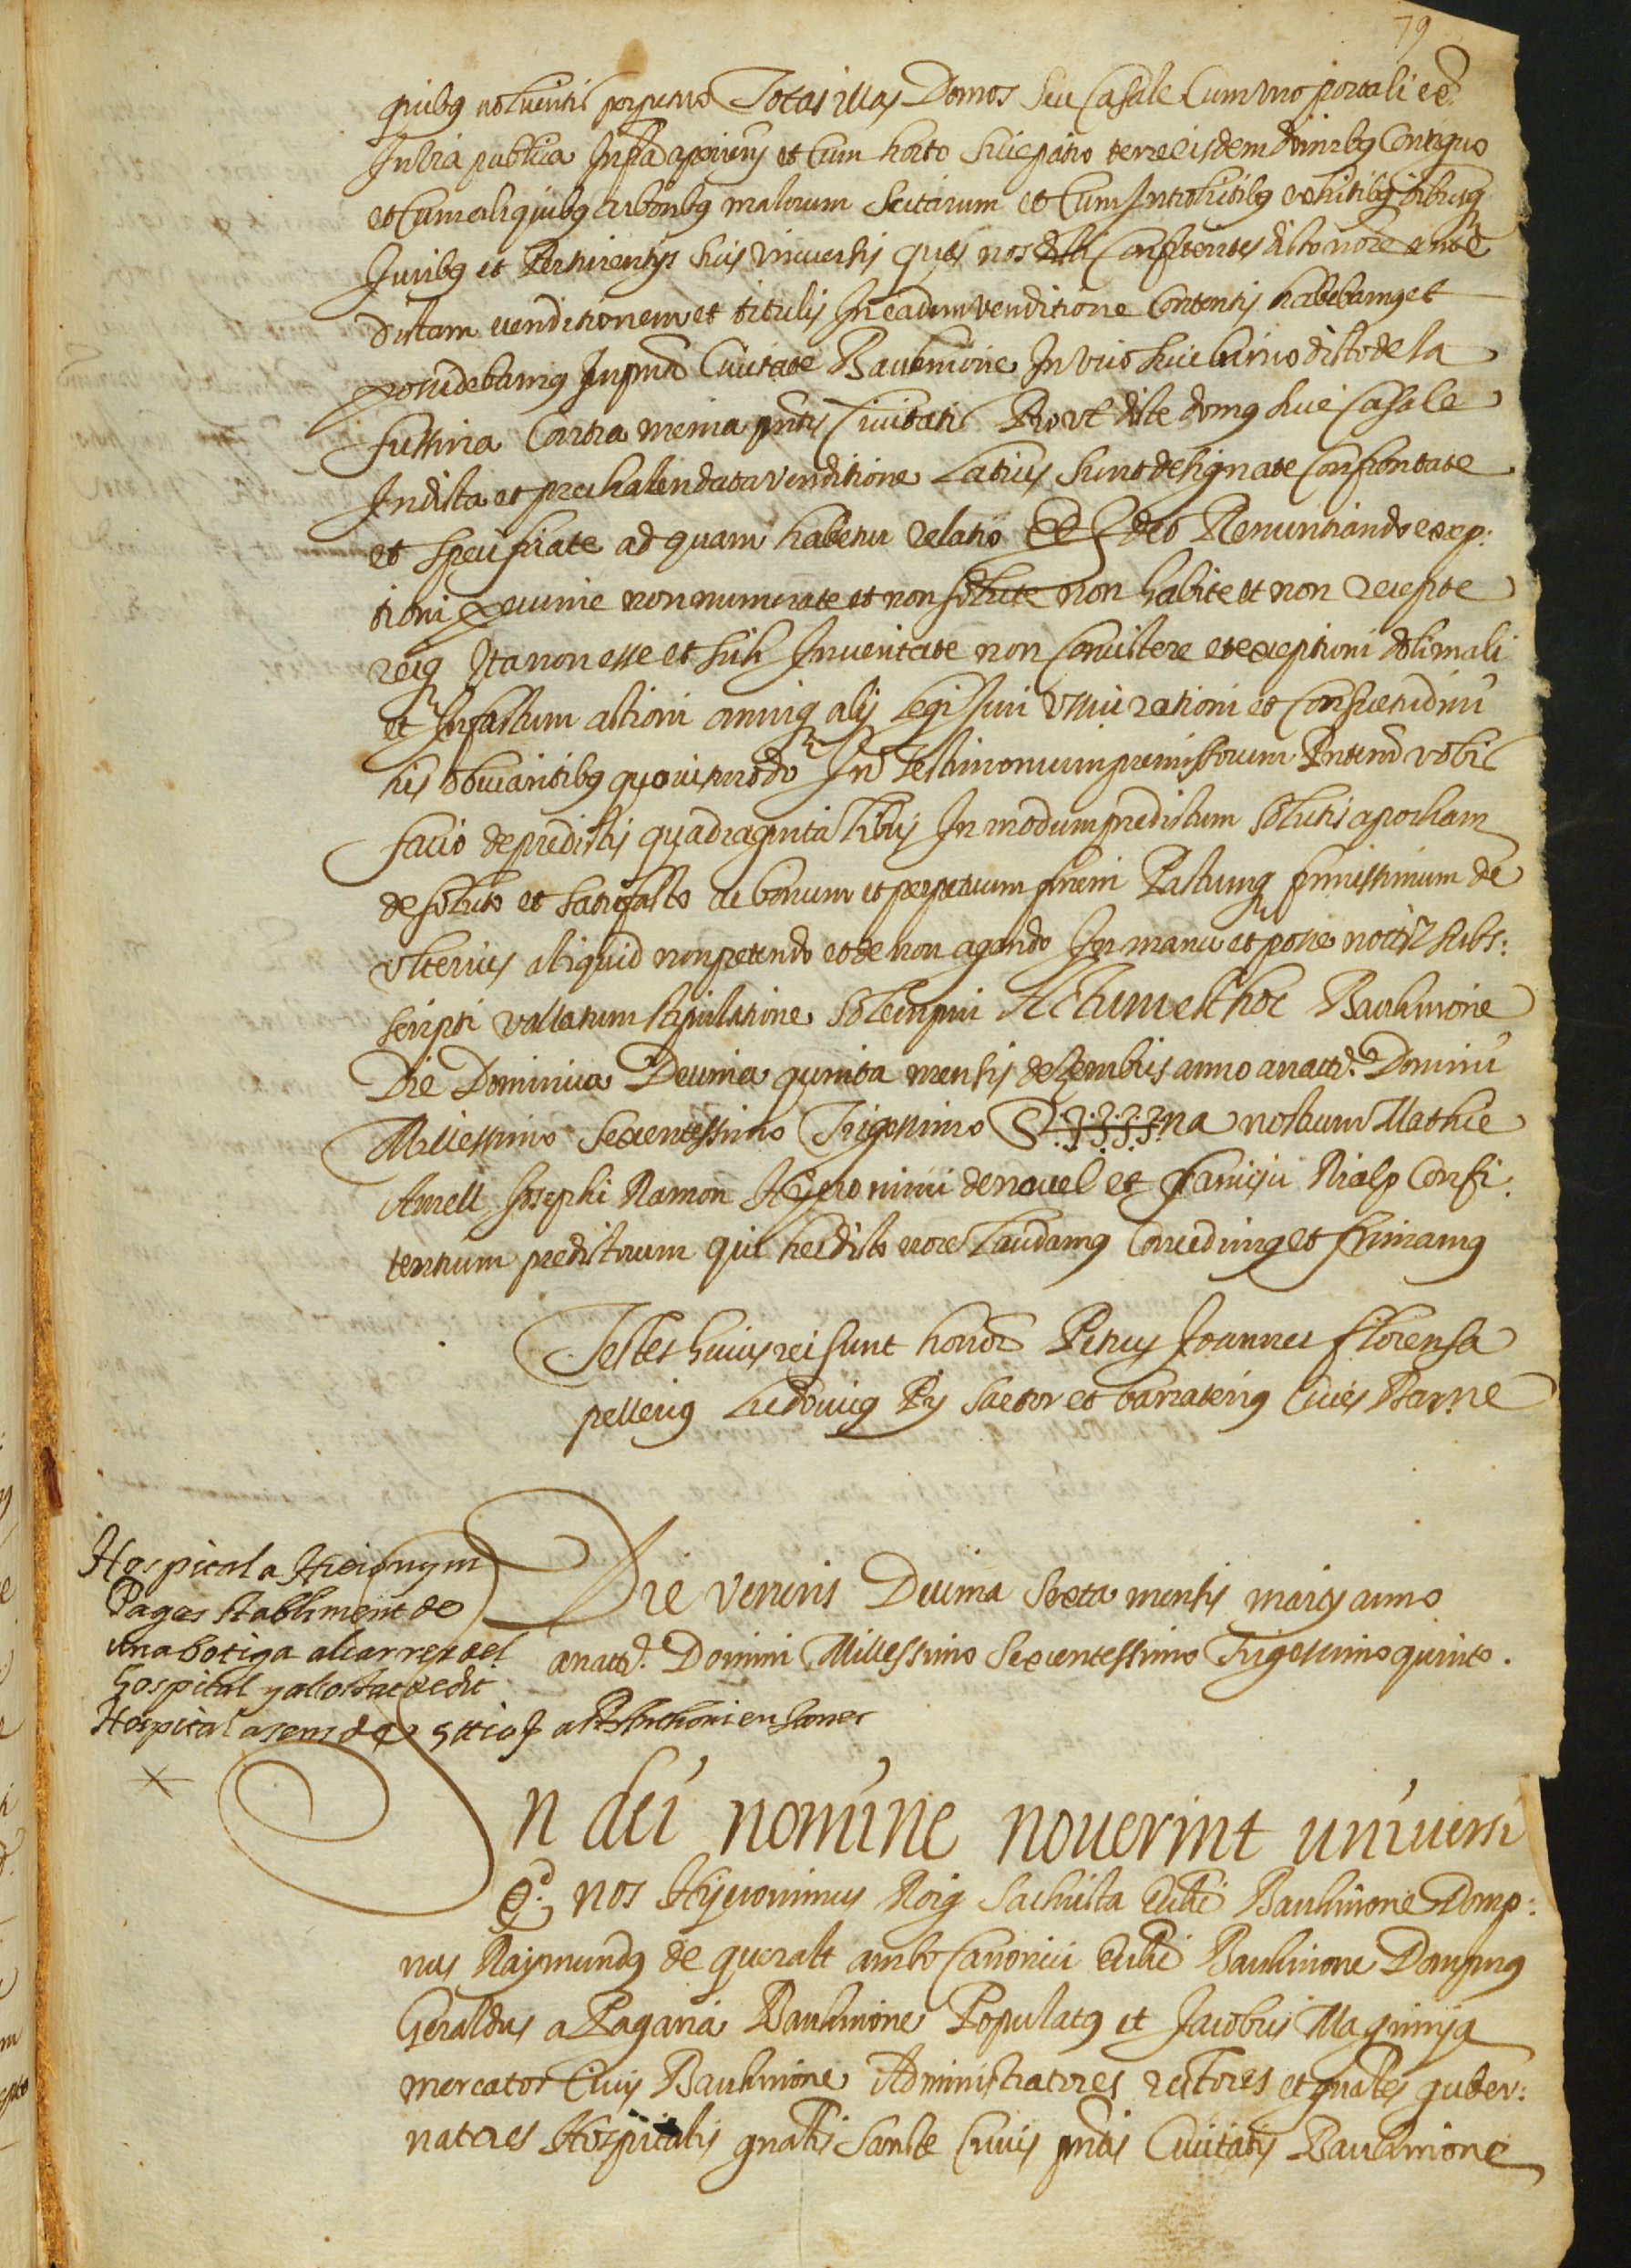 79
quibus volueritis perpetuo Totas illas Domos Seu Casale Cum uno portali etc.
In via publica Infra aperiens et Cum horto sive patio terre eisdem domibus Contiguo
et Cum aliquibus arboribus malorum Citrarum et Cum Introhitibus exhitibus
Juribus et Pertinentijs suis universis quas nos dicti Confitentes dicto nore ante
dictam venditionem et titulis In eadem venditione Contentis habebamus et
possidebamus In pnti Civitate Barchinone In vico sive burrio dicto de la
fusteria Contra menia pntis Civitatis Prout dicte domus sive Casale
In dicta et precalendata venditione Latius sunt designate Confrontate
et specificate ad quam habetur relatio Et Ideo Renuntiando excep:
tioni pecunie non numerate et non solute non habite et non recepte
reiq Ita non esse et sic In veritate non Consistere et exceptioni doli mali
et In factum actioni omniq alij Legi Juri Usui rationi et Consuetudini
his obviantibus quovismodo In Testimonium premissorum Pntem vobis
facio de predictis quadraginta libris In modum predictum solutis apocham
de soluto et satisfacto ac bonum et perpetuum finem Pactumq firmissimum de
ulterius aliquid non petendo et de non agendo In manu et posse notarii subs:
scripti vallatum stipulatione Solempni Actum est hoc Barchinone
Die Dominica Decima quinta mensis dezembris anno a natte. Domini
Millessimo Sexentessimo Trigessimo S.;.;.;.;.na nostrum Mathie
Amell Josephi Ramon Hyeronimi de novel et Francisci Rialp Confi:
tentium predictorum qui hec dicto nore Laudamus Concedimus et firmamus
Testes huius rei sunt honor. Petrus Joannes florensa
pellerius Ludovicus Py Sartor et barraterius Cives Barne
Hospital a Hieronym
Pages stabliment de
una botiga al carrer del
hospital y al costat de dit
Hospital a sens de 5 ti 10 s a St Anthoni en Janer
Die veneris Decima Sexta mensis marcij anno
a natte. Domini Millessimo Sexcentessimo Trigessimo quinto.
In dei nomine noverint universi
Qd. nos Hyeronimus Roig Sachrista Eccie Barchinone Domp:
nus Raymundus de queralt ambo Canonici Eccie Barchinone Dompnus
Geraldus a Pagaria Barchinone Populatus et Jacobus Maginya
mercator Civis Barchinone Administratores rectores et gnales guber:
natores Hospitalis gnalis Sancte Crucis pntis Civitatis Barchinone